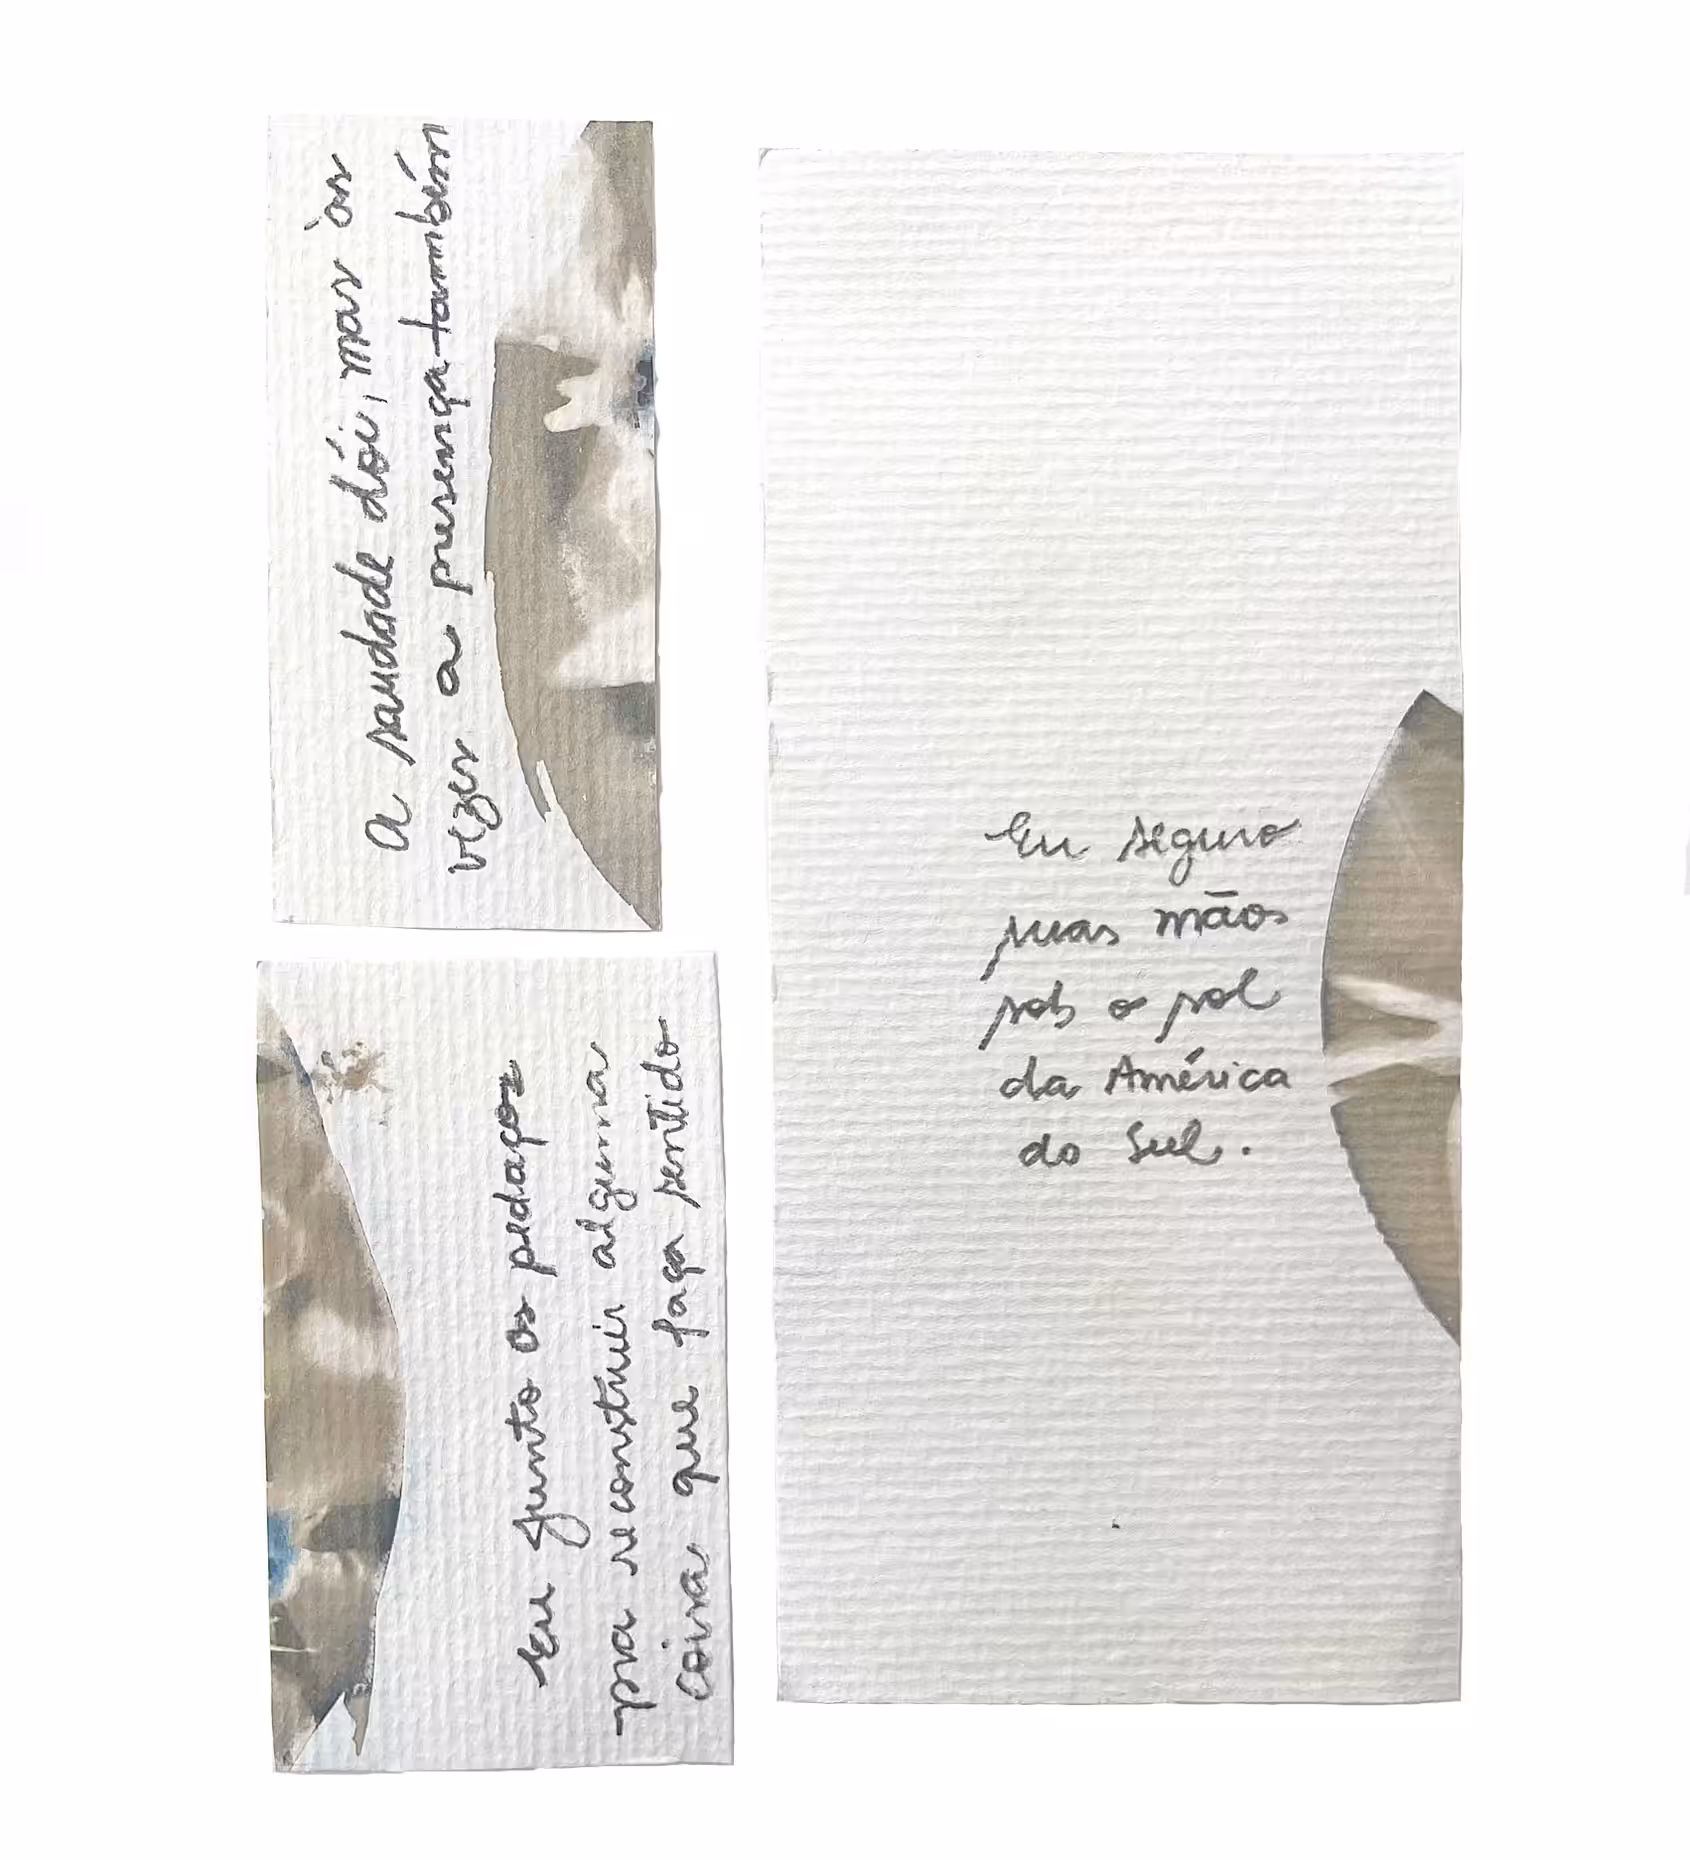 A saudade dói, mas às
vezes a presença também
Eu junto os pedaços
pra reconstruir alguma
coisa que faça sentido
Eu seguro
suas mãos
sob o sol
da América
do Sul.